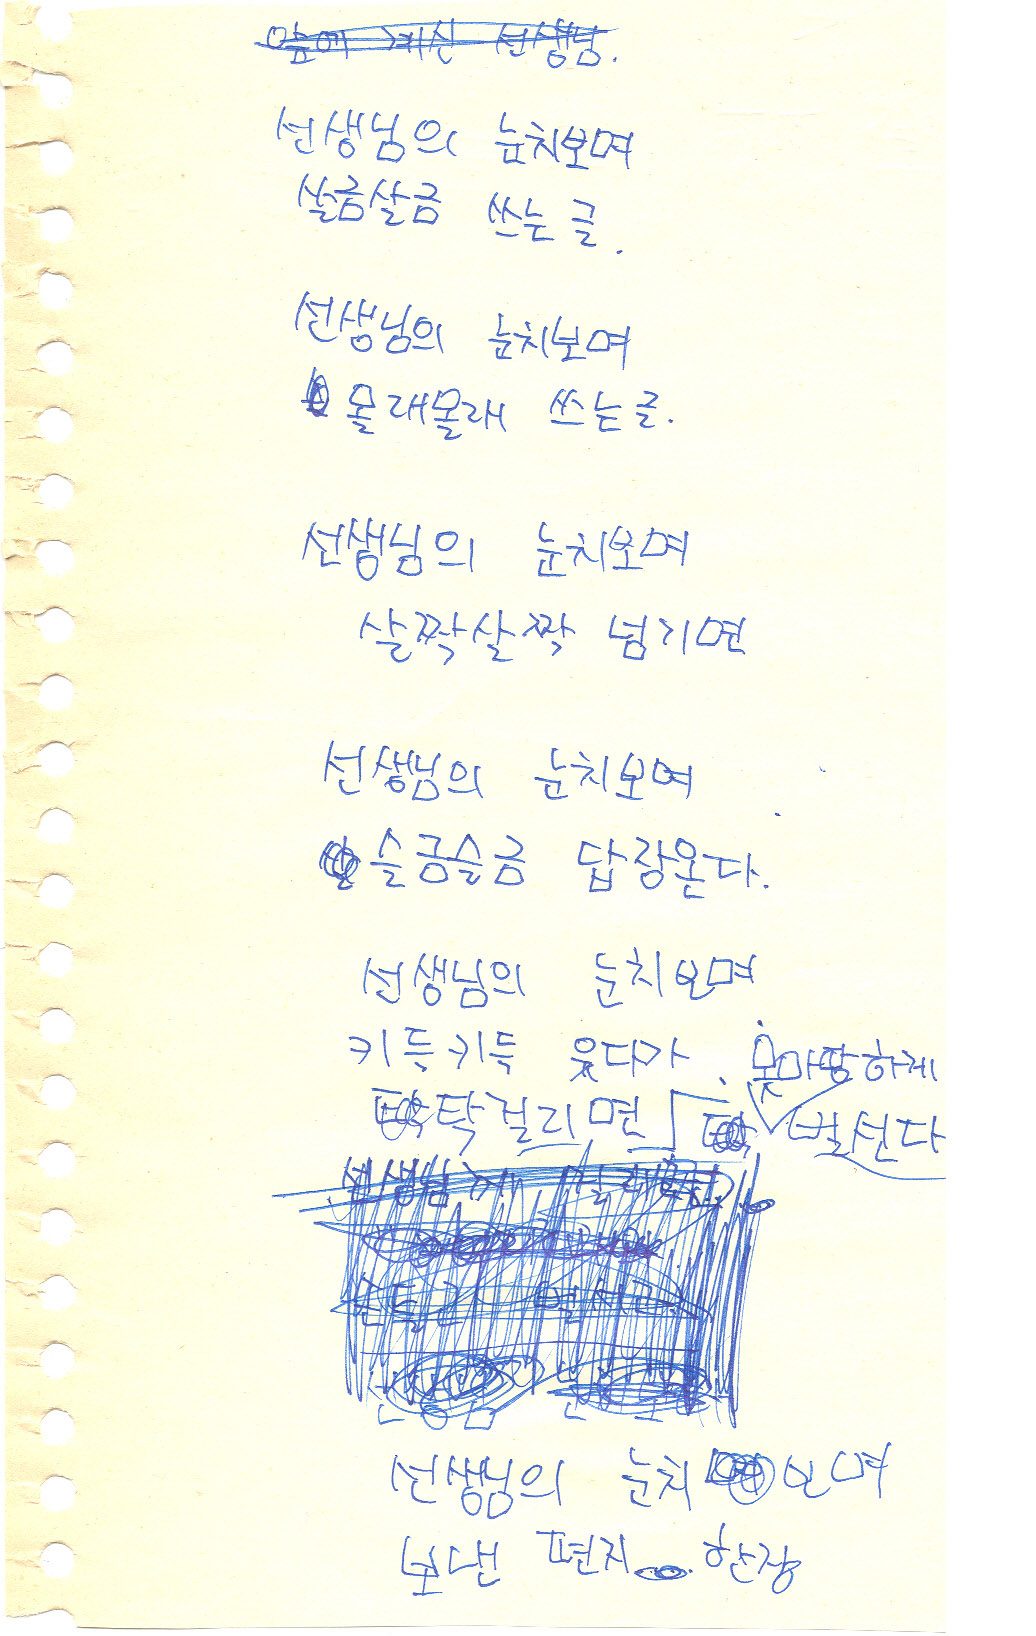 앞에 계신 선생님.
선생님의 눈치보며
쓸금살금 쓰는 글.
선생님의 눈치보며
몰래몰래 쓰는글.
선생님의 눈치보며
살짝살짝 넘기면
선생님의 눈치보며
슬금슬금 답장온다.
선생님의 눈치보며
키득키득 웃다가.
못마땅하게
탁걸리면 벌선다
선생님의 눈치 보며
보낸 편지 한장